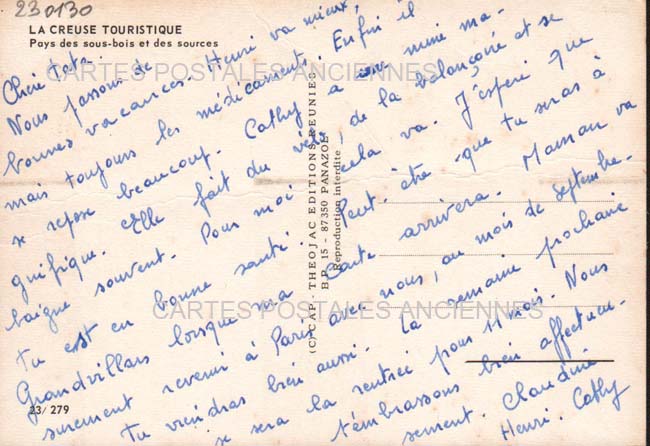 230130
LA CREUSE TOURISTIQUE
Pays des sous-bois et des sources
Chère Tata.
Nous passons de
bonnes vacances. Henri va mieux,
mais toujours les médicaments. Enfin il
se repose beaucoup. Cathy a une mine ma-
gnifique. Elle fait du vélo, de la balançoire et se
baigne souvent. Pour moi cela va. J'espère que
tu est en bonne santé. Peut-être que tu seras à
Grandvillars lorsque ma carte arrivera. Maman va
surement revenir à Paris avec nous, au mois de septembre.
Tu viendras bien aussi. La semaine prochaine
se sera la rentrée pour 11 mois. Nous
t'embrassons bien affectueu-
sement. Claudine
Henri. Cathy
23/279
(C) CAP - THEOJAC EDITIONS REUNIES
B.P. 15 - 87350 PANAZOL
Reproduction interdite
CARTES POSTALES ANCIENNES
CARTES POSTALES ANCIENNES